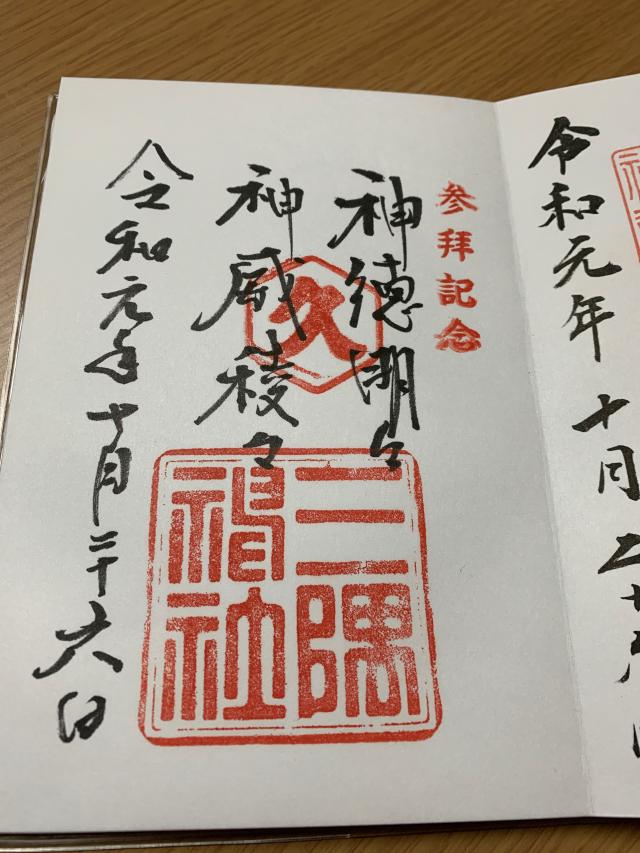 令和元年十月二十
参拝記念
神徳明々
神威稜々
久
三隅
神社
令和元年十月二十六日